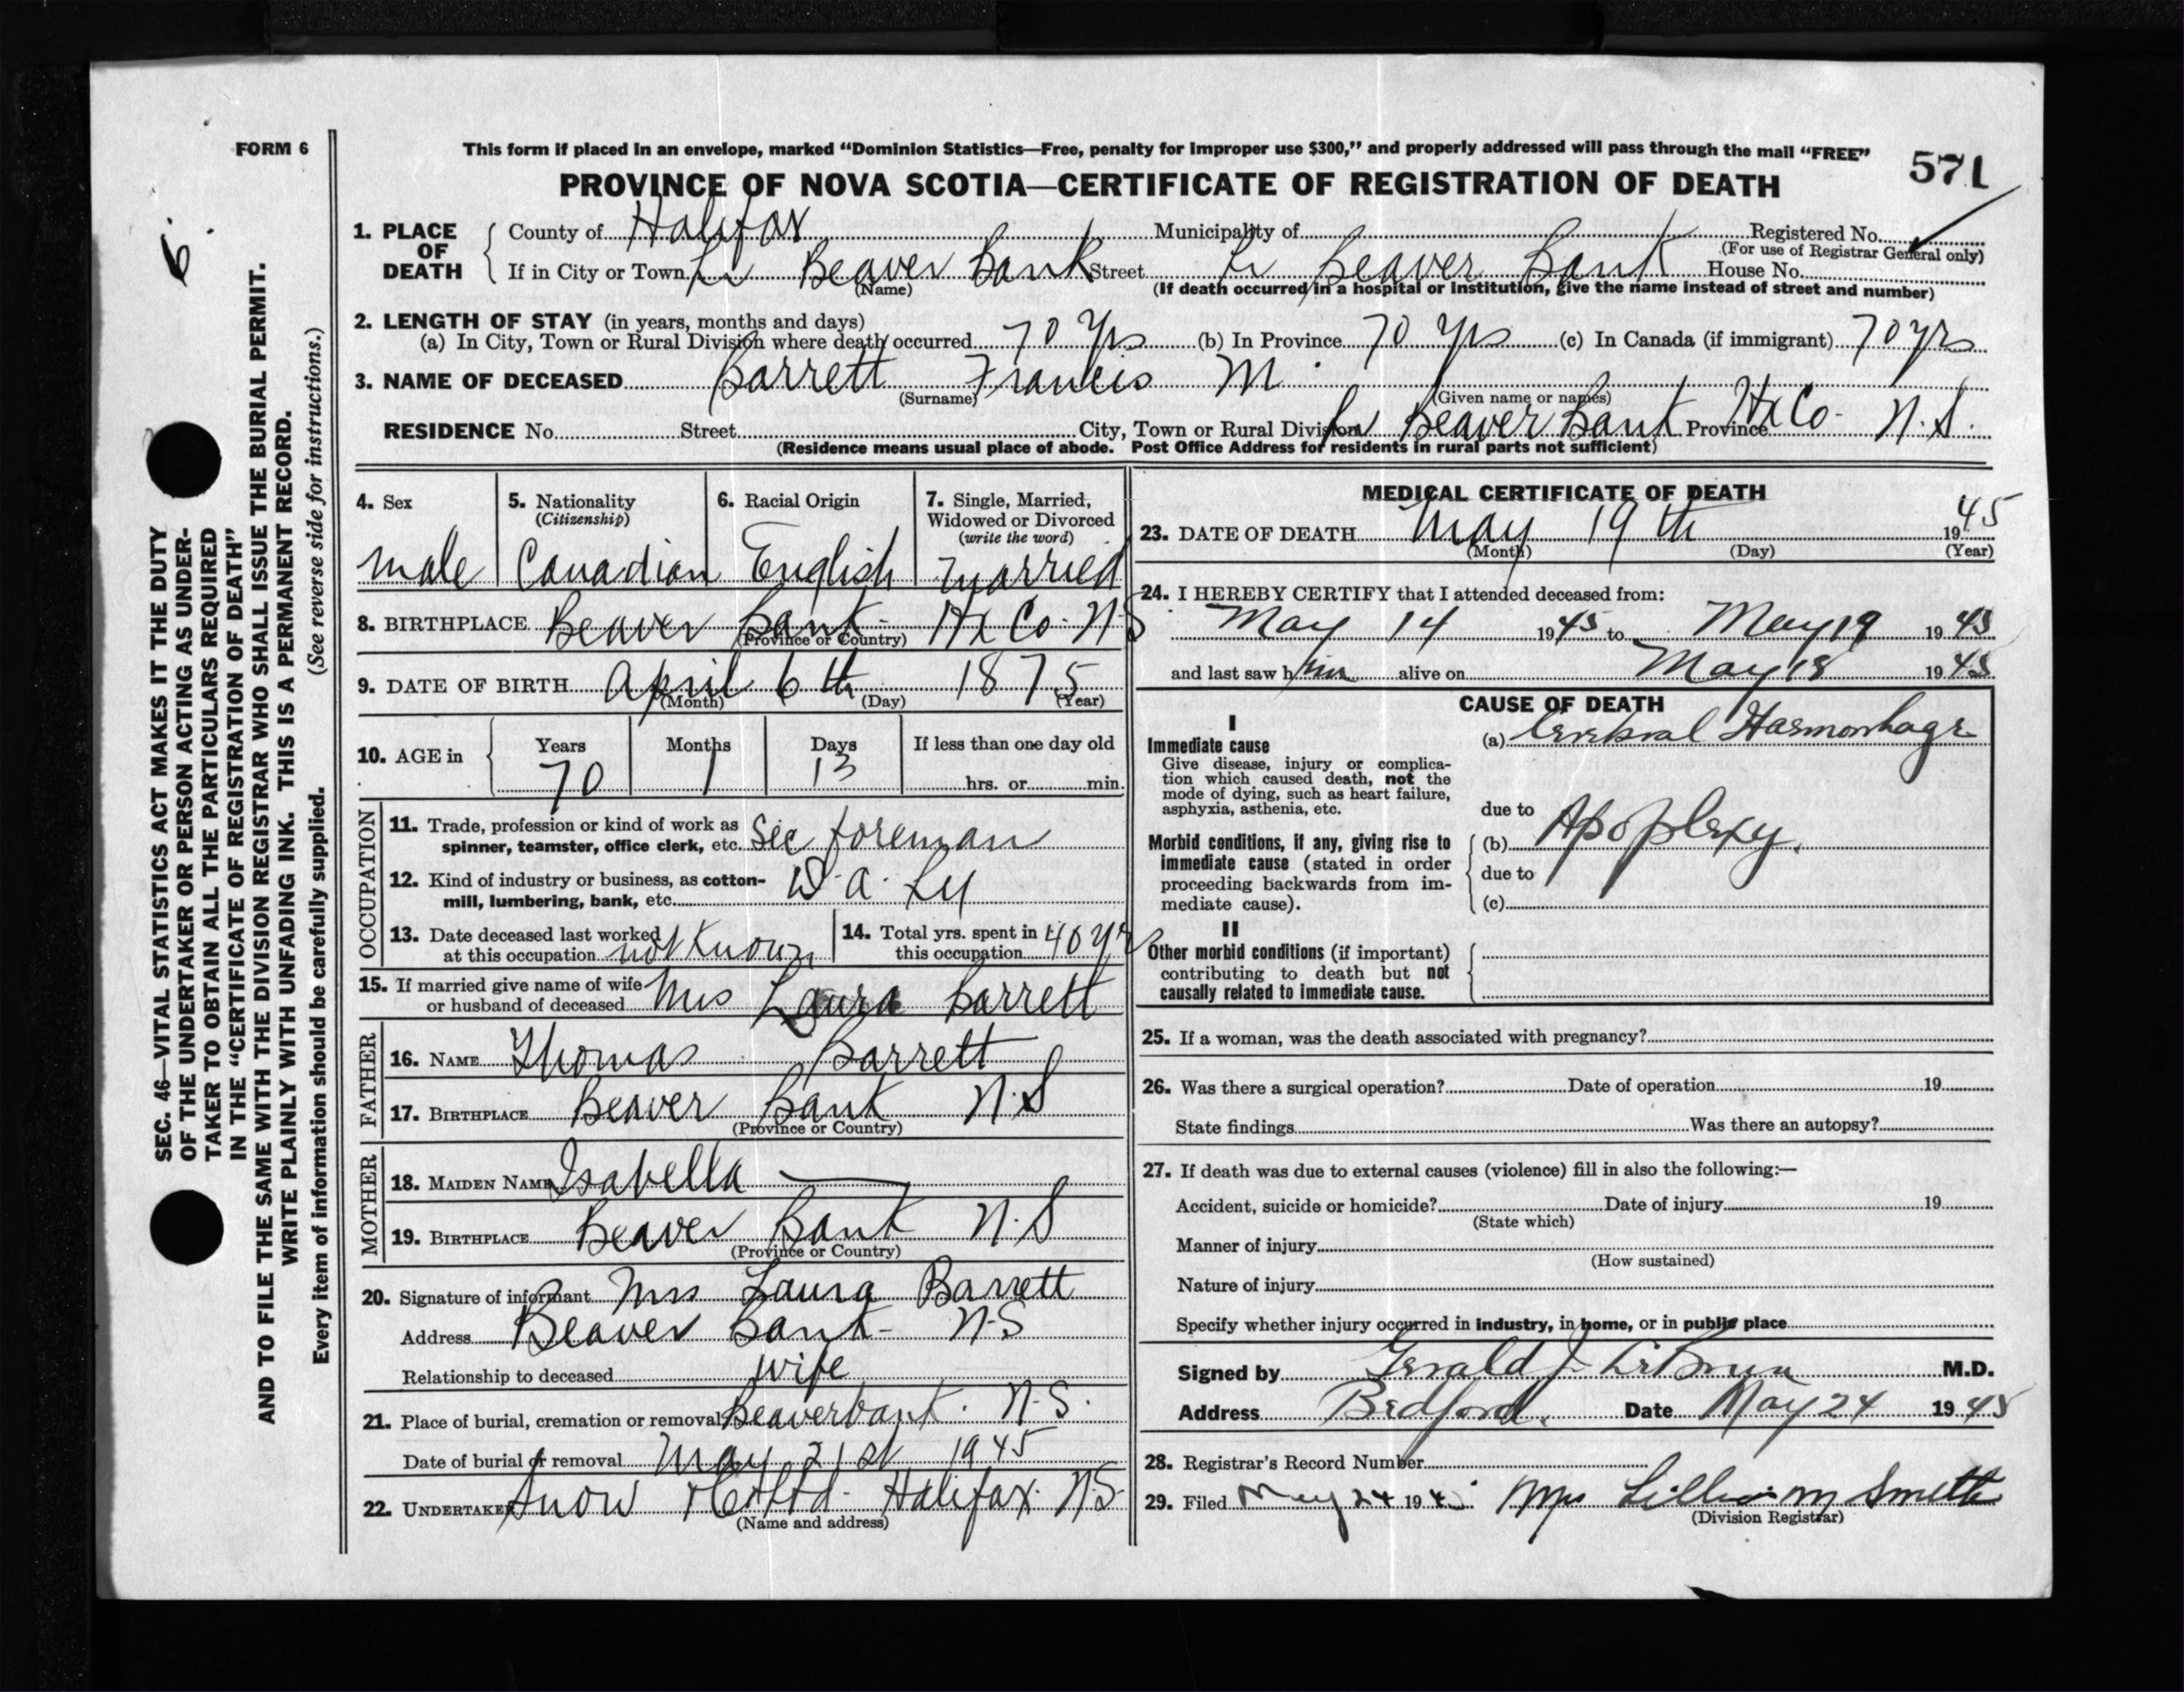 FORM 6
This form if placed in an envelope, marked “Dominion Statistics—Free, penalty for improper use $300,” and properly addressed will pass through the mail “FREE”
571
PROVINCE OF NOVA SCOTIA—CERTIFICATE OF REGISTRATION OF DEATH
6.
SEC. 46—VITAL STATISTICS ACT MAKES IT THE DUTY
OF THE UNDERTAKER OR PERSON ACTING AS UNDER-
TAKER TO OBTAIN ALL THE PARTICULARS REQUIRED
IN THE “CERTIFICATE OF REGISTRATION OF DEATH”
AND TO FILE THE SAME WITH THE DIVISION REGISTRAR WHO SHALL ISSUE THE BURIAL PERMIT.
WRITE PLAINLY WITH UNFADING INK. THIS IS A PERMANENT RECORD.
Every item of information should be carefully supplied. (See reverse side for instructions.)
1. PLACE OF DEATH
County of Halifax Municipality of Registered No.
(For use of Registrar General only)
If in City or Town Lr Beaver Bank Street Lr Beaver Bank House No.
(Name) (If death occurred in a hospital or institution, give the name instead of street and number)
2. LENGTH OF STAY (in years, months and days)
(a) In City, Town or Rural Division where death occurred 70 Yrs (b) In Province 70 Yrs (c) In Canada (if immigrant) 70 yrs
3. NAME OF DECEASED Barrett Francis M.
(Surname) (Given name or names)
RESIDENCE No. Street City, Town or Rural Division Lr Beaver Bank Province Hx Co- N.S.
(Residence means usual place of abode. Post Office Address for residents in rural parts not sufficient)
4. Sex
male
5. Nationality
(Citizenship)
Canadian
6. Racial Origin
English
7. Single, Married,
Widowed or Divorced
(write the word)
Married
8. BIRTHPLACE Beaver Bank- Hx Co- NS
(Province or Country)
9. DATE OF BIRTH April 6th 1875
(Month) (Day) (Year)
10. AGE in Years Months Days If less than one day old
70 1 13 hrs. or min.
OCCUPATION
11. Trade, profession or kind of work as
spinner, teamster, office clerk, etc. Sec foreman
12. Kind of industry or business, as cotton-
mill, lumbering, bank, etc. D. A. Ry
13. Date deceased last worked
at this occupation not known
14. Total yrs. spent in
this occupation 40 yrs
15. If married give name of wife
or husband of deceased Mrs Laura Barrett
FATHER
16. NAME Thomas Barrett
17. BIRTHPLACE Beaver Bank N.S
(Province or Country)
MOTHER
18. MAIDEN NAME Isabella —
19. BIRTHPLACE Beaver Bank N.S
(Province or Country)
20. Signature of informant Mrs Laura Barrett
Address Beaver Bank- N-S
Relationship to deceased wife
21. Place of burial, cremation or removal Beaverbank. N.S.
Date of burial or removal May 21st 1945
22. UNDERTAKER Snow & Co Ltd- Halifax. N.S.
(Name and address)
MEDICAL CERTIFICATE OF DEATH
23. DATE OF DEATH May 19th 1945
(Month) (Day) (Year)
24. I HEREBY CERTIFY that I attended deceased from:
May 14 1945 to May 19 1945
and last saw him alive on May 18 1945
CAUSE OF DEATH
I
Immediate cause
Give disease, injury or complica-
tion which caused death, not the
mode of dying, such as heart failure,
asphyxia, asthenia, etc.
(a) Cerebral Haemorrhage
due to
Morbid conditions, if any, giving rise to
immediate cause (stated in order
proceeding backwards from im-
mediate cause).
(b) Apoplexy.
due to
(c)
II
Other morbid conditions (if important)
contributing to death but not
causally related to immediate cause.
25. If a woman, was the death associated with pregnancy?
26. Was there a surgical operation? Date of operation 19
State findings Was there an autopsy?
27. If death was due to external causes (violence) fill in also the following:—
Accident, suicide or homicide? Date of injury 19
(State which)
Manner of injury
(How sustained)
Nature of injury
Specify whether injury occurred in industry, in home, or in public place
Signed by Gerald J. LeBrun M.D.
Address Bedford. Date May 24 1945
28. Registrar's Record Number
29. Filed May 24 1945. Mrs Lillian M Smith
(Division Registrar)